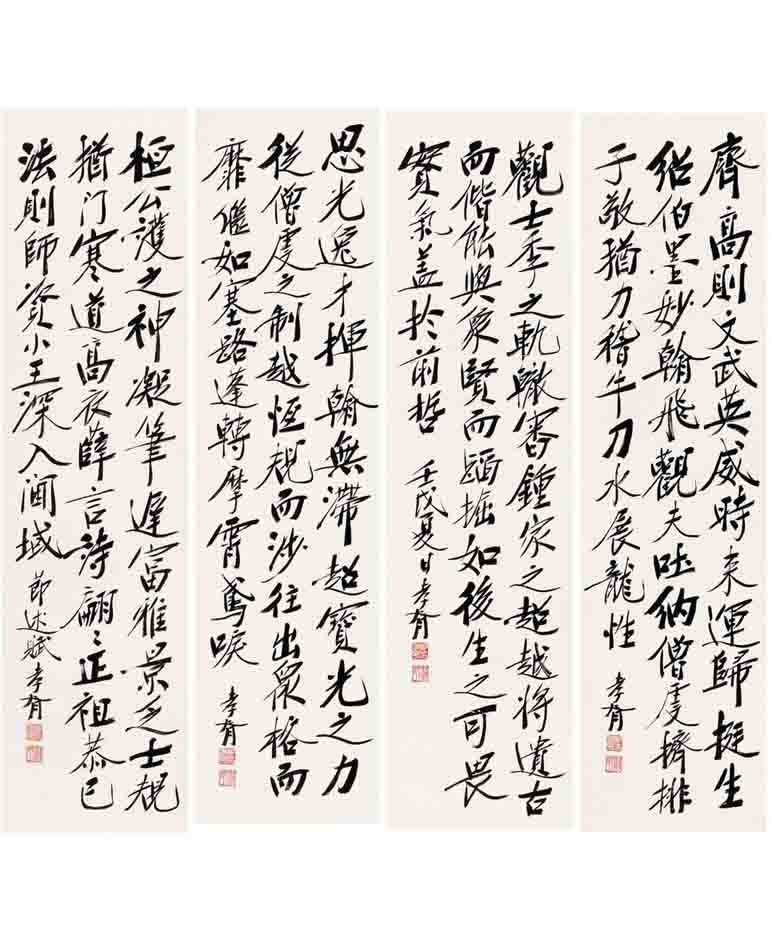 齊高則文武英威時来運歸挺生
紹伯墨妙翰飛觀夫吐納僧虔擠排
子敬猶力稽牛刀水展龍性 孝胥
觀士季之軌轍審鍾家之超越将遺古
而偕能與衆賢而掘如後生之可畏
實氣蓋於前哲 壬戌夏日孝胥
思光逸才揮翰無滯超寶光之力
從僧虔之制越恆規而涉往出衆格而
靡繼如塞路蓬轉摩霄鳶唳 孝胥
桓公護之神凝筆遲富雅景之士規
猶門寒道高衣薜言詩翩〻正祖恭己
法則師資小王深入閫域 節述賦孝胥